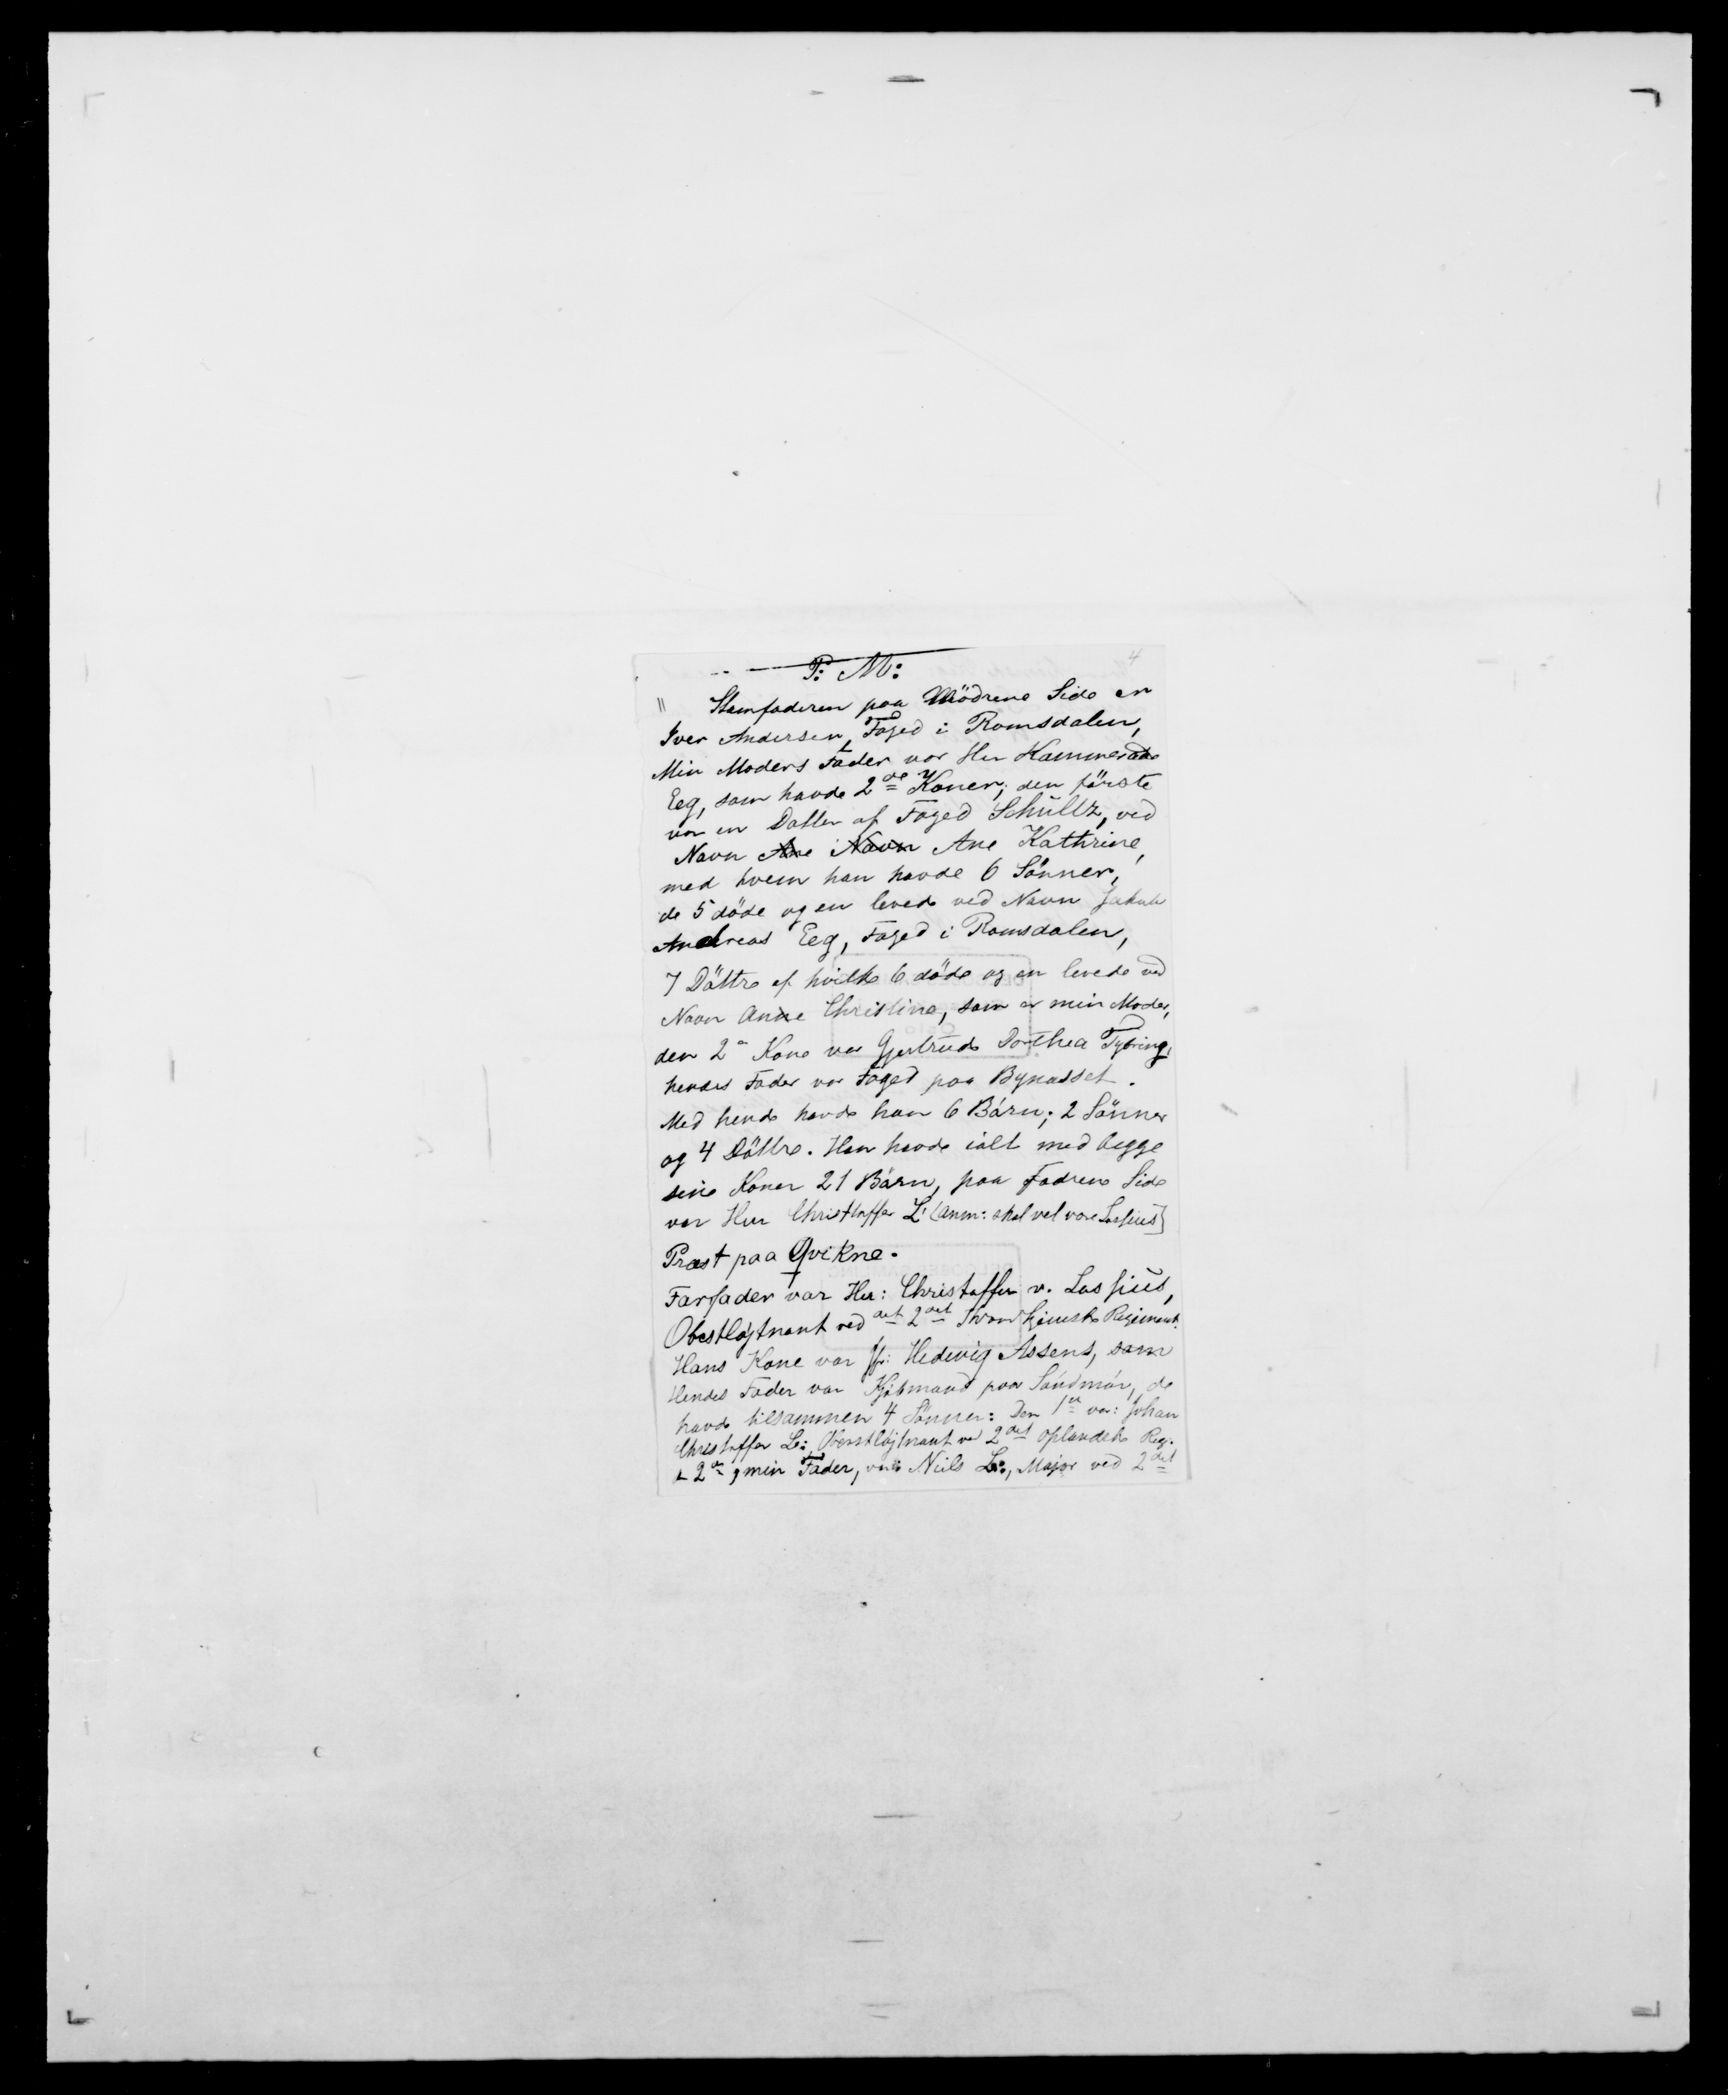 4
P: M:
" Stamfaderen paa Mödrene Side er
Iver Andersen, Foged i Romsdalen,
Min Moders Fader var Her Kammeraade
Eeg, som havde 2de Koner; den förste
var en Datter af Foged Schültz, ved
Navn Ane Navn Ane Kathrine,
med hvem han havde 6 Sönner,
de 5 döde og en levede ved Navn Jakob
Andreas Eeg, Foged i Romsdalen,
7 Döttre af hvilke 6 döde og en levede ved
Navn Anne Christine, som er min Moder,
den 2n Kone var Gjertrude Dorthea Tybring,
hendes Fader var Foged paa Bynæsset.
Med hende havde han 6 Börn; 2 Sönner
og 4 Döttre. Han havde ialt med begge
sine Koner 21 Börn, paa Fadrene Side
var Her Christhoffer L! (anm: skal vel være Lossius]
Præst paa Qvikne.
Farfader var Her: Christoffer v. Lossiüs,
Obestlöjtnant ved det 2det Trondhjemske Regiment.
Hans Kone var fr: Hedevig Assens, som
Hendes Fader var Kjöbmand paa Söndmör, de
havde tilsammen 4 Sönner: Den 1te var: Johan
Christoffer L: Oberstlöjtnant ved 2det oplandske Reg.
2den, min Fader, var Niels L:, Major ved 2det